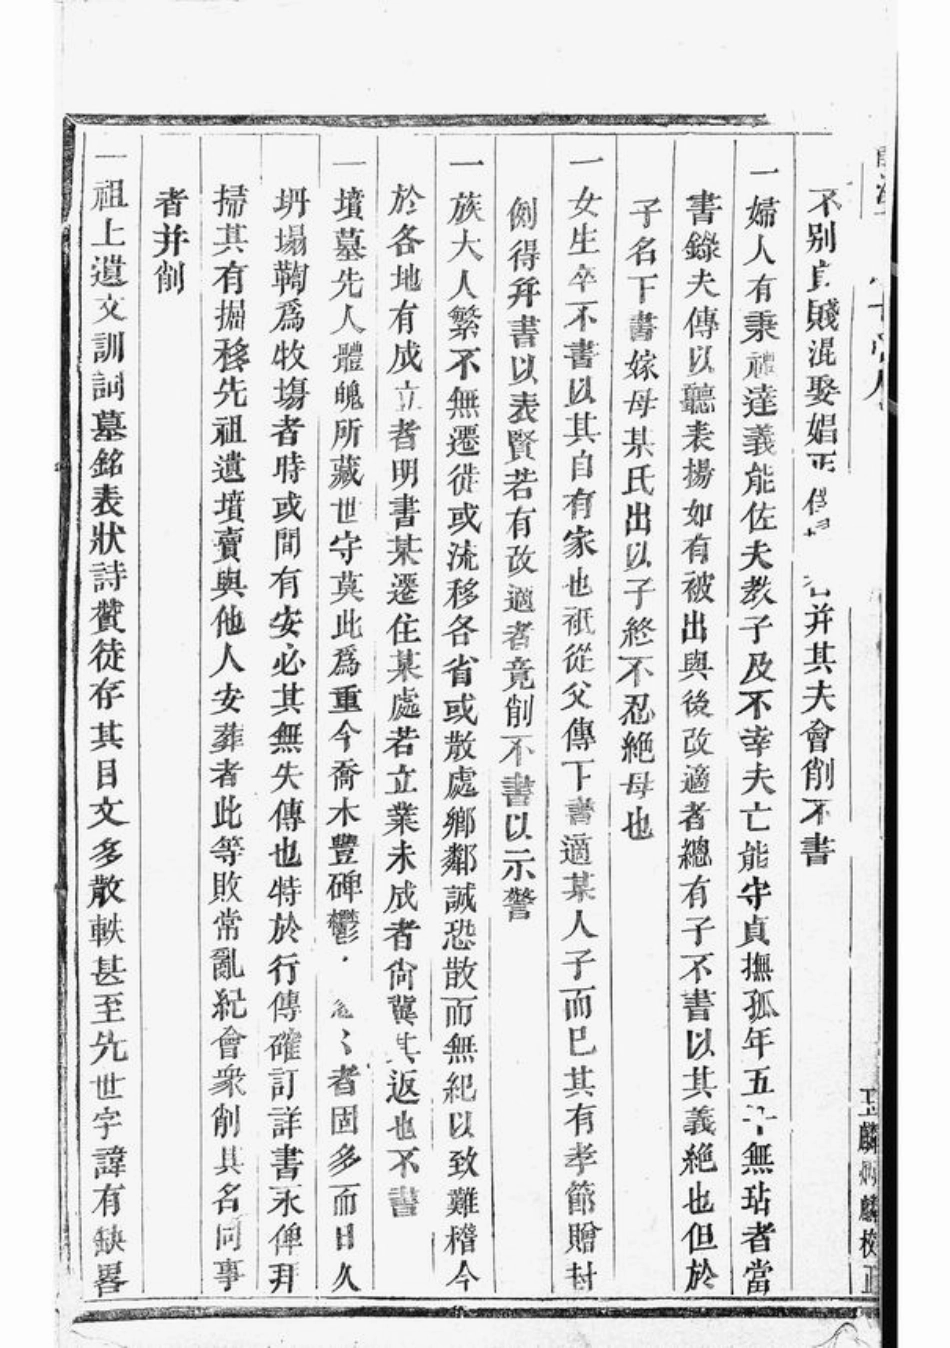 不别良賤混娶娼 并其夫會削不書
一婦人有秉禮達義能佐夫教子及不幸夫亡能守貞撫孤年五十無玷者當
書錄夫傳以聽表揚如有被出與後改適者總有子不書以其義絶也但於
子名下書嫁母某氏出以子終不忍絶母也
一女生卒不書以其自有家也祇從父傳下書適某人子而已其有孝節贈封
例得并書以表賢若有改適者竟削不書以示警
一族大人繁不無遷徙或流移各省或散處鄉鄰誠恐散而無紀以致難稽今
於各地有成立者明書某遷住某處若立業未成者尙冀其返也不書
一墳墓先人體魄所藏世守莫此爲重今喬木豐碑鬱 者固多而日久
坍塌鞠爲牧塲者時或間有安必其無失傳也特於行傳確訂詳書永俾拜
掃其有掘移先祖遺墳賣與他人安葬者此等敗常亂紀會衆削其名同事
者并削
一祖上遺文訓詞墓銘表狀詩贊徒存其目文多散軼甚至先世字諱有缺畧
麟 麟校正